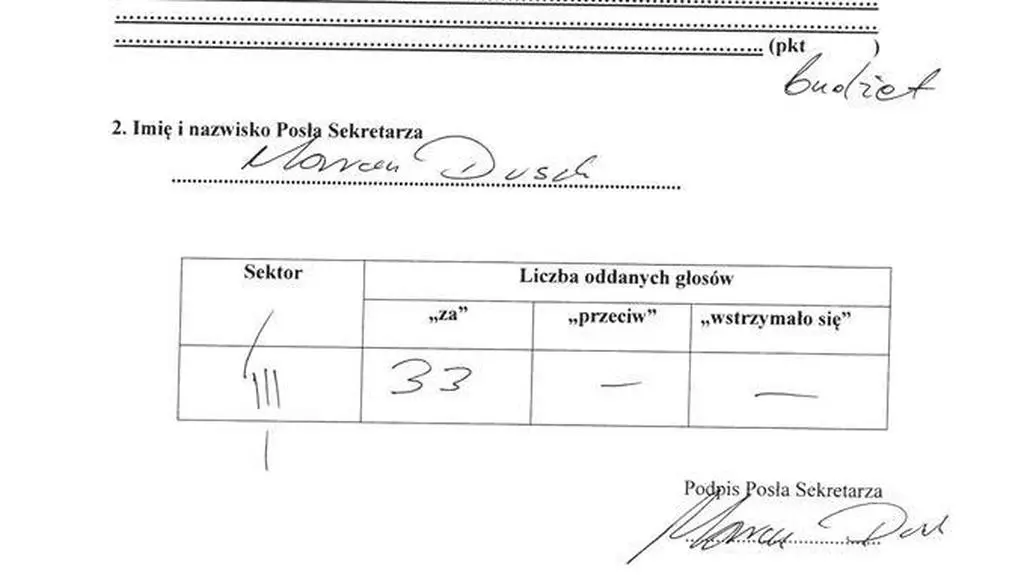 (pkt )
budżet
2. Imię i nazwisko Posła Sekretarza
Marcin Dusek
Sektor
Liczba oddanych głosów
„za” „przeciw” „wstrzymało się”
III 33 — —
Podpis Posła Sekretarza